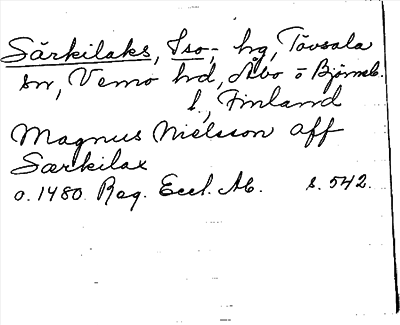 Särkilaks, Iso-, hg, Tövsala
sn, Vemo hd, Åbo o Björneb.
l, Finland
Magnus Nielsson aff
Særkilax
o. 1480. Reg. Eccl. Ab. s. 542.